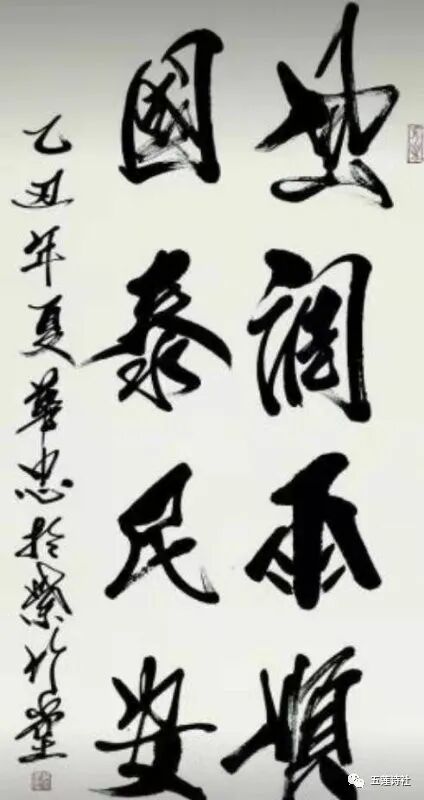 風調雨順
國泰民安
乙丑年夏華忠於紫竹堂
五莲诗社